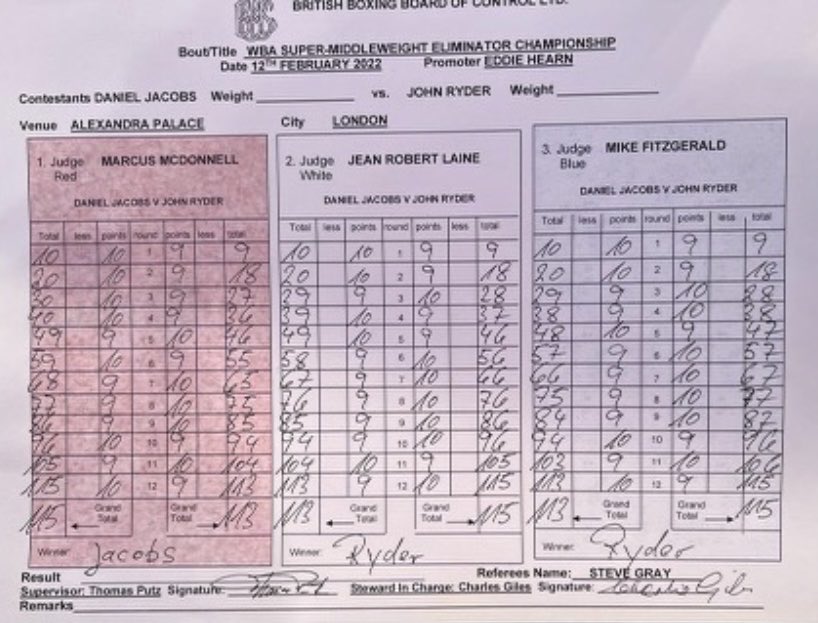 BRITISH BOXING BOARD OF CONTROL LTD.
Bout/Title WBA SUPER-MIDDLEWEIGHT ELIMINATOR CHAMPIONSHIP
Date 12TH FEBRUARY 2022 Promoter EDDIE HEARN
Contestants DANIEL JACOBS Weight vs. JOHN RYDER Weight
Venue ALEXANDRA PALACE City LONDON
1. Judge MARCUS MCDONNELL
Red
DANIEL JACOBS V JOHN RYDER
Total less points round points less total
10 10 1 9 9
20 10 2 9 18
30 10 3 9 27
40 10 4 9 36
49 9 5 10 46
59 10 6 9 55
68 9 7 10 65
77 9 8 10 75
86 9 9 10 85
96 10 10 9 94
105 9 11 10 104
115 10 12 9 113
115 Grand Total Grand Total 113
Winner: Jacobs
2. Judge JEAN ROBERT LAINE
White
DANIEL JACOBS V JOHN RYDER
Total less points round points less total
10 10 1 9 9
20 10 2 9 18
29 9 3 10 28
39 10 4 9 37
49 10 5 9 46
58 9 6 10 56
67 9 7 10 66
76 9 8 10 76
85 9 9 10 86
94 9 10 10 96
104 10 11 9 105
113 9 12 10 115
113 Grand Total Grand Total 115
Winner: Ryder
3. Judge MIKE FITZGERALD
Blue
DANIEL JACOBS V JOHN RYDER
Total less points round points less total
10 10 1 9 9
20 10 2 9 18
29 9 3 10 28
38 9 4 10 38
48 10 5 9 47
57 9 6 10 57
66 9 7 10 67
75 9 8 10 77
84 9 9 10 87
94 10 10 9 96
103 9 11 10 106
113 10 12 9 115
113 Grand Total Grand Total 115
Winner: Ryder
Result Referees Name: STEVE GRAY
Supervisor: Thomas Putz Signature: Steward In Charge: Charles Giles Signature:
Remarks